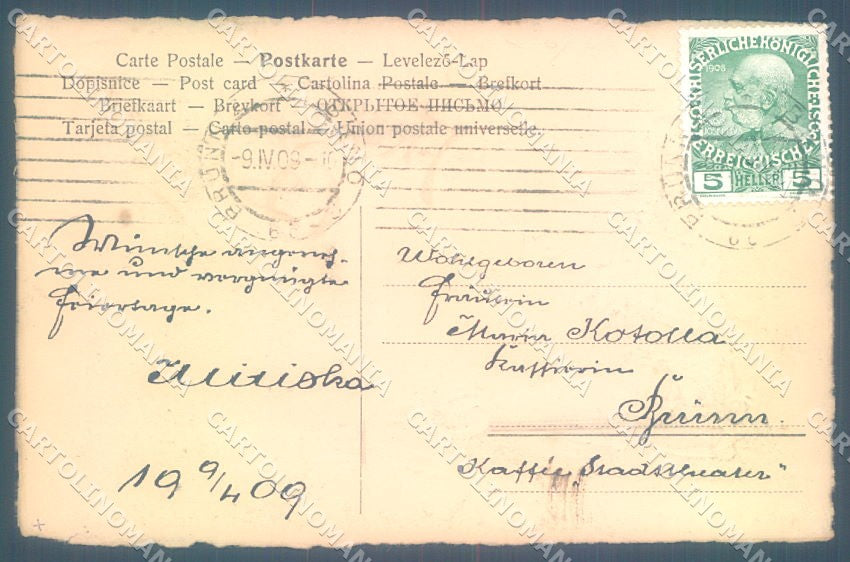 Carte Postale — Postkarte — Levelező-Lap
Dopisnice — Post card — Cartolina Postale — Brefkort
Briefkaart — Brevkort — ОТКРЫТОЕ ПИСЬМО
Tarjeta postal — Carto postal — Union postale universelle
BRÜNN
-9.IV.09-
1908
KAISERLICHE KÖNIGLICHE
ÖSTERREICHISCHE
5 HELLER 5
Wünsche angeneh-
me und vergnügte
Feiertage.
19 9/4 09
Wohlgeboren
Fräulein
Maria Kotolla
Kassierin
Brünn.
Kaffee „Stadttheater"
CARTOLINOMANIA